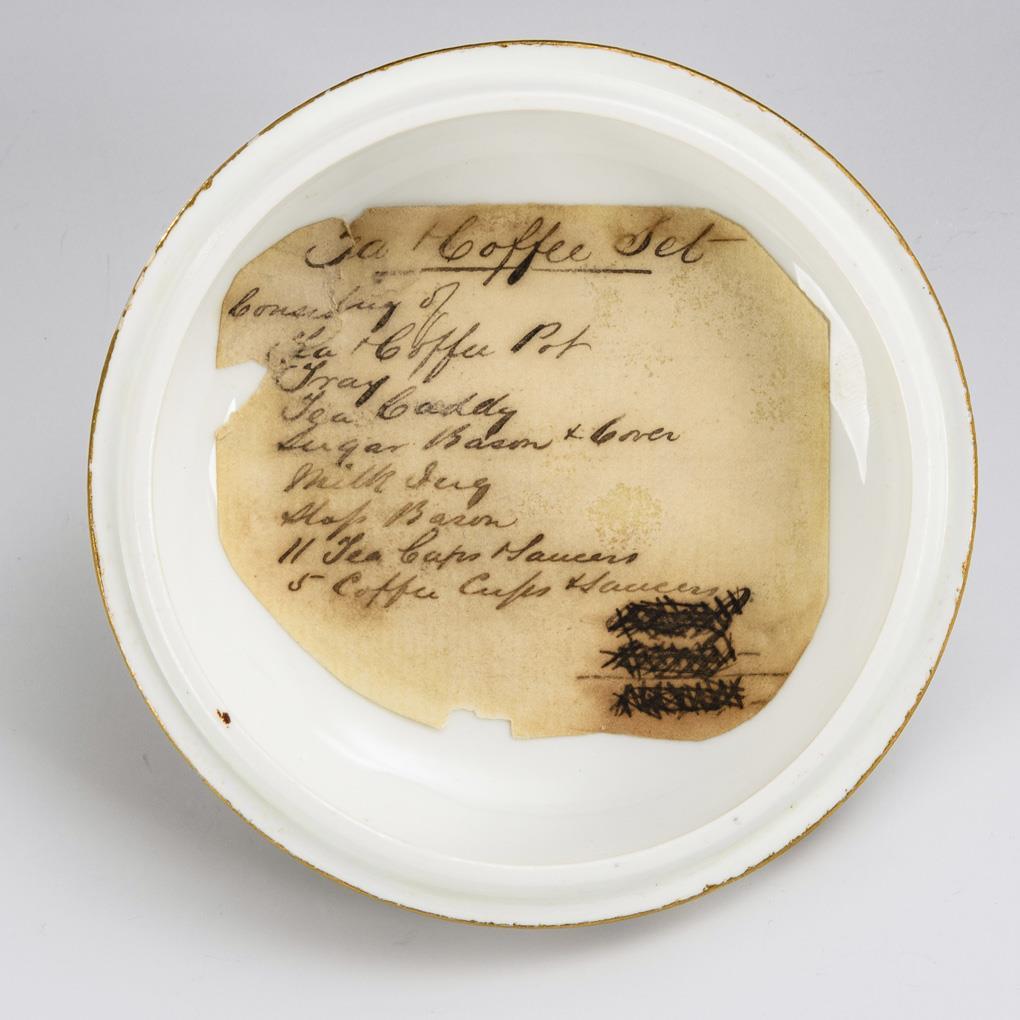 Tea & Coffee Set
Consisting of
Tea & Coffee Pot
Tray
Tea Caddy
Sugar Bason & Cover
Milk Jug
Slop Bason
11 Tea Cups & Saucers
5 Coffee Cups & Saucers